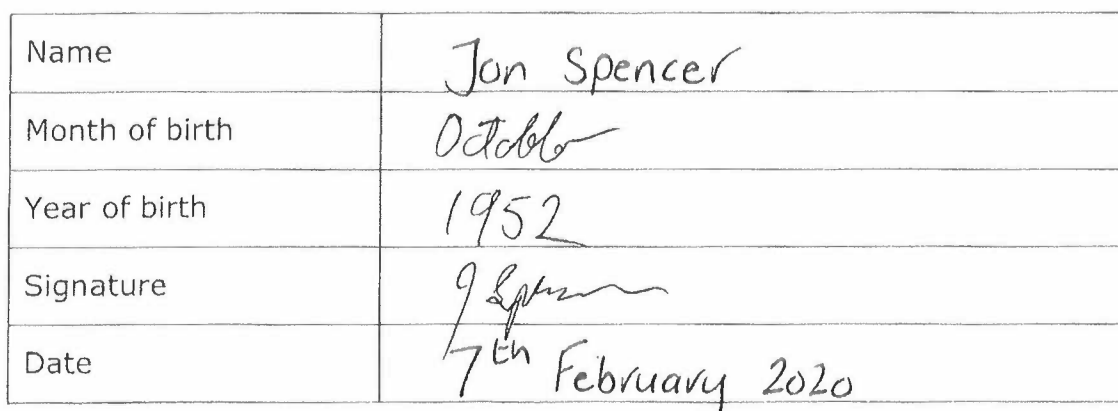 Name Jon Spencer
Month of birth October
Year of birth 1952
Signature J Spencer
Date 7th February 2020